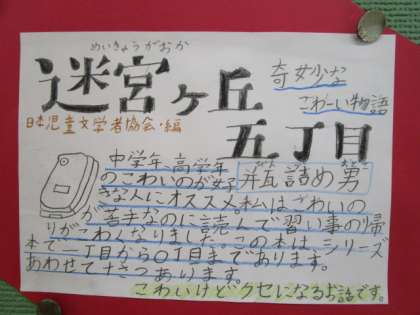 めいきゅうがおか
迷宮ヶ丘
奇妙な
こわーい物語
日本児童文学者協会・編
五丁目
瓶詰め男
中学年、高学年
のこわいのが好
きな人にオススメ。私はこわいの
が苦手なのに読んで習い事の帰
りがこわくなりました。この本は、シリーズ
本で一丁目から〇丁目まであります。
あわせて十さつあります。
こわいけどクセになるお話です。